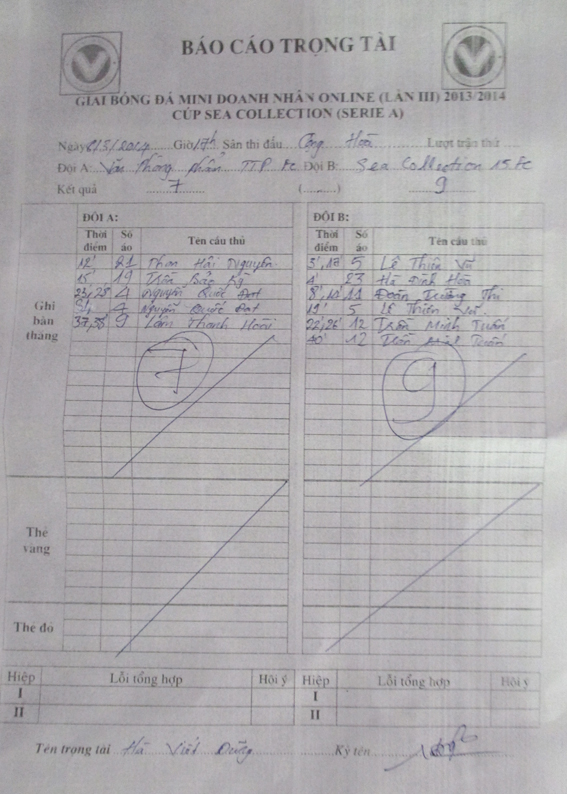 BÁO CÁO TRỌNG TÀI
GIẢI BÓNG ĐÁ MINI DOANH NHÂN ONLINE (LẦN III) 2013/2014
CÚP SEA COLLECTION (SERIE A)
Ngày 8/5/2014 Giờ 17h Sân thi đấu Cộng Hoà Lượt trận thứ
Đội A: Văn Phòng phẩm TTP Fc Đội B: Sea Collection 15 Fc
Kết quả 7 (..........) 9
ĐỘI A: ĐỘI B:
Thời điểm Số áo Tên cầu thủ Thời điểm Số áo Tên cầu thủ
Ghi bàn thắng
12' 21 Phan Hải Nguyên 3', 17' 5 Lê Thiên Vũ
15' 19 Trần Bảo Kỳ 4' 23 Hà Đình Hoà
23', 28' 4 Nguyễn Quốc Đạt 8', 10' 11 Đoàn Trường Thi
4 Nguyễn Quốc Đạt 19' 5 Lê Thiên Vũ
37', 38' 9 Lâm Thanh Hoài 22', 26' 12 Trần Minh Tuấn
40' 12 Trần Minh Tuấn
7 9
Thẻ vàng
Thẻ đỏ
Hiệp Lỗi tổng hợp Hội ý Hiệp Lỗi tổng hợp Hội ý
I I
II II
Tên trọng tài Hà Viết Dũng Ký tên